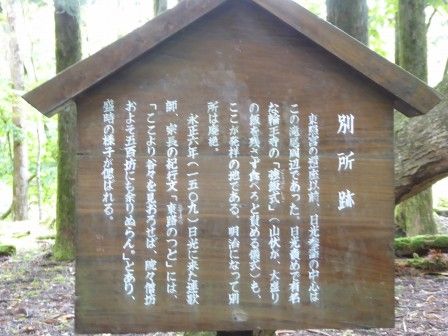 別所跡
東照宮の鎮座以前、日光参詣の中心は
この滝尾周辺であった。日光責めで有名
な輪王寺の「強飯式」（山伏が、大盛り
の飯を残さず食べろと責める儀式）も、
ここが発祥の地である。明治になって別
所は廃絶。
永正六年（一五〇九）日光に来た連歌
師、宗長の紀行文「東路のつと」には、
「ここより谷々を見おろせば、院々僧坊
およそ五百坊にも余りぬらん。」とあり、
盛時の様子が偲ばれる。